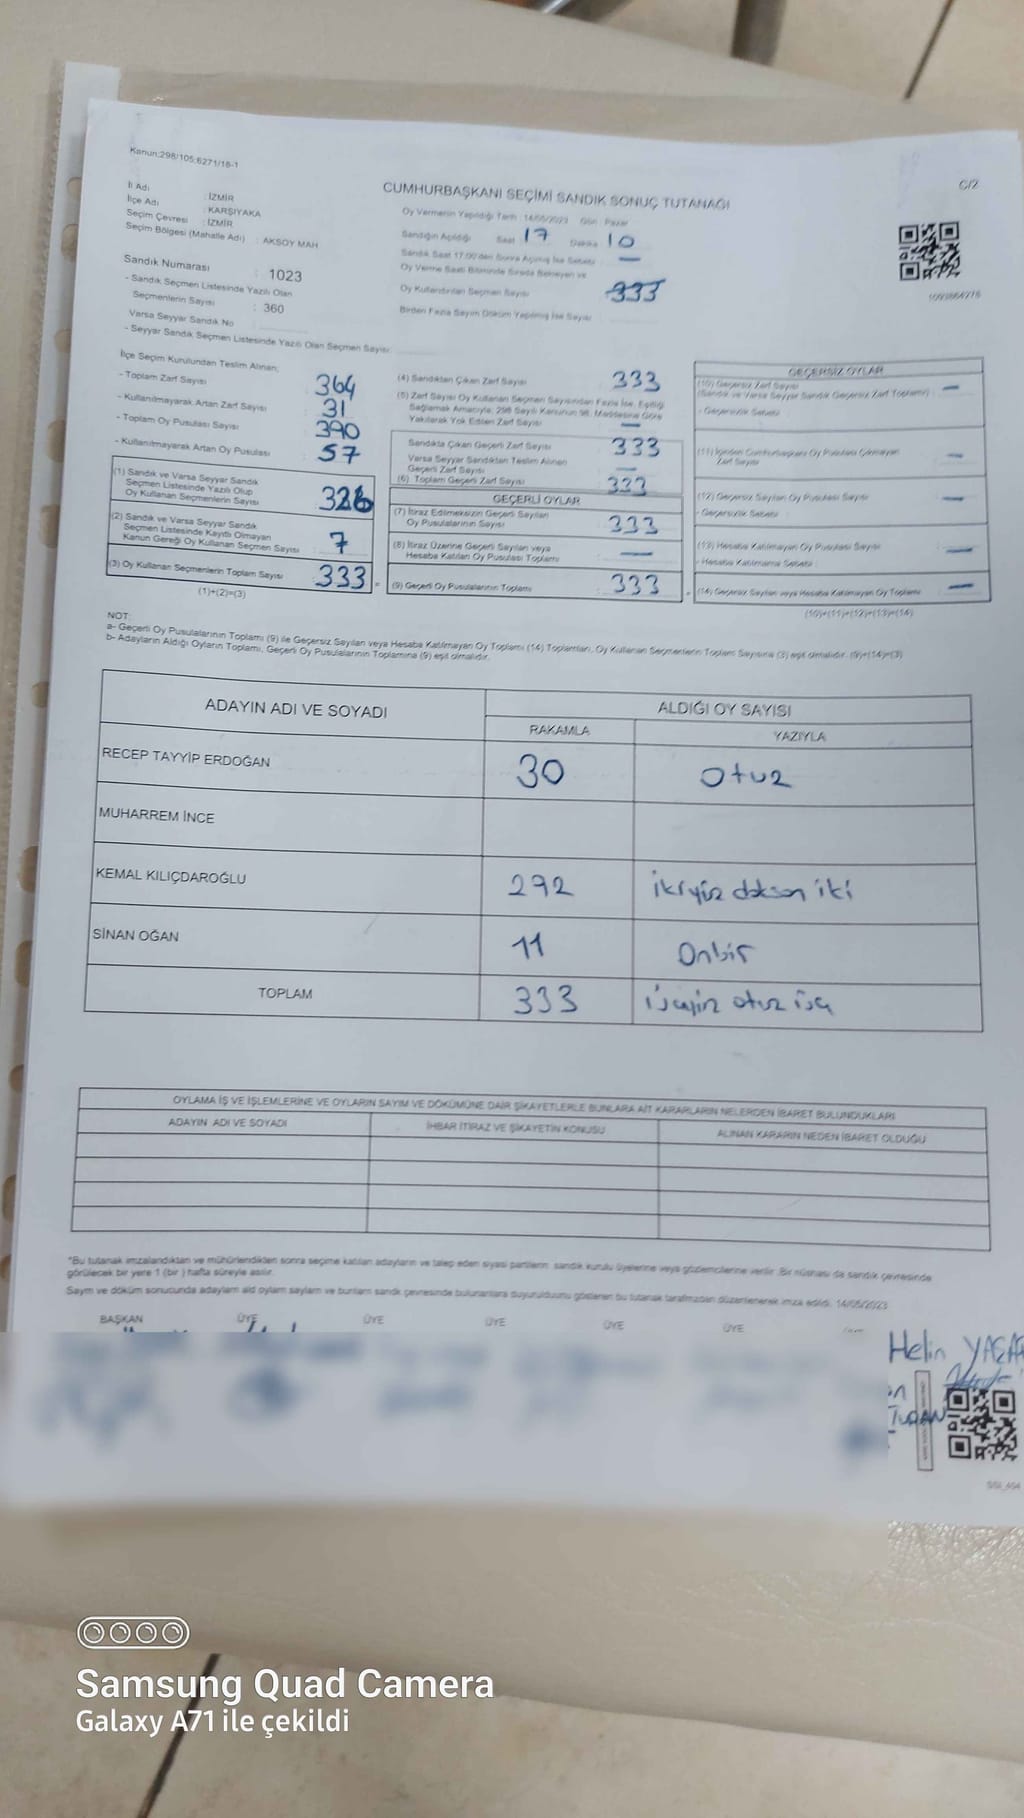 Kanun:298/105;6271/18-1
C/2
CUMHURBAŞKANI SEÇİMİ SANDIK SONUÇ TUTANAĞI
İl Adı : İZMİR
İlçe Adı : KARŞIYAKA
Seçim Çevresi : İZMİR
Seçim Bölgesi (Mahalle Adı) : AKSOY MAH
Oy Vermenin Yapıldığı Tarih : 14/05/2023 Gün : Pazar
Sandığın Açıldığı Saat : 17 Dakika : 10
Sandık Saat 17:00'den Sonra Açılmış İse Sebebi : —
Oy Verme Saati Bitiminde Sırada Bekleyen ve
Oy Kullandırılan Seçmen Sayısı : 333
Birden Fazla Sayım Döküm Yapılmış İse Sayısı :
Sandık Numarası : 1023
- Sandık Seçmen Listesinde Yazılı Olan
Seçmenlerin Sayısı : 360
Varsa Seyyar Sandık No :
- Seyyar Sandık Seçmen Listesinde Yazılı Olan Seçmen Sayısı:
İlçe Seçim Kurulundan Teslim Alınan;
- Toplam Zarf Sayısı : 364
- Kullanılmayarak Artan Zarf Sayısı : 31
- Toplam Oy Pusulası Sayısı : 390
- Kullanılmayarak Artan Oy Pusulası : 57
(1) Sandık ve Varsa Seyyar Sandık
Seçmen Listesinde Yazılı Olup
Oy Kullanan Seçmenlerin Sayısı : 326
(2) Sandık ve Varsa Seyyar Sandık
Seçmen Listesinde Kayıtlı Olmayan
Kanun Gereği Oy Kullanan Seçmen Sayısı : 7
(3) Oy Kullanan Seçmenlerin Toplam Sayısı : 333
(1)+(2)=(3)
(4) Sandıktan Çıkan Zarf Sayısı : 333
(5) Zarf Sayısı Oy Kullanan Seçmen Sayısından Fazla İse, Eşitliği
Sağlamak Amacıyla; 298 Sayılı Kanunun 98. Maddesine Göre
Yakılarak Yok Edilen Zarf Sayısı : —
Sandıkta Çıkan Geçerli Zarf Sayısı : 333
Varsa Seyyar Sandıktan Teslim Alınan
Geçerli Zarf Sayısı : —
(6) Toplam Geçerli Zarf Sayısı : 333
GEÇERLİ OYLAR
(7) İtiraz Edilmeksizin Geçerli Sayılan
Oy Pusulalarının Sayısı : 333
(8) İtiraz Üzerine Geçerli Sayılan veya
Hesaba Katılan Oy Pusulası Toplamı : —
= (9) Geçerli Oy Pusulalarının Toplamı : 333
GEÇERSİZ OYLAR
(10) Geçersiz Zarf Sayısı
(Sandık ve Varsa Seyyar Sandık Geçersiz Zarf Toplamı) : —
- Geçersizlik Sebebi :
(11) İçinden Cumhurbaşkanı Oy Pusulası Çıkmayan
Zarf Sayısı : —
(12) Geçersiz Sayılan Oy Pusulası Sayısı : —
- Geçersizlik Sebebi :
(13) Hesaba Katılmayan Oy Pusulası Sayısı : —
- Hesaba Katılmama Sebebi :
(14) Geçersiz Sayılan veya Hesaba Katılmayan Oy Toplamı : —
(10)+(11)+(12)+(13)=(14)
NOT:
a- Geçerli Oy Pusulalarının Toplamı (9) ile Geçersiz Sayılan veya Hesaba Katılmayan Oy Toplamı (14) Toplamları, Oy Kullanan Seçmenlerin Toplam Sayısına (3) eşit olmalıdır. (9)+(14)=(3)
b- Adayların Aldığı Oyların Toplamı, Geçerli Oy Pusulalarının Toplamına (9) eşit olmalıdır.
ADAYIN ADI VE SOYADI ALDIĞI OY SAYISI
RAKAMLA YAZIYLA
RECEP TAYYİP ERDOĞAN 30 Otuz
MUHARREM İNCE
KEMAL KILIÇDAROĞLU 292 ikiyüz doksan iki
SİNAN OĞAN 11 Onbir
TOPLAM 333 üçyüz otuz üç
OYLAMA İŞ VE İŞLEMLERİNE VE OYLARIN SAYIM VE DÖKÜMÜNE DAİR ŞİKAYETLERLE BUNLARA AİT KARARLARIN NELERDEN İBARET BULUNDUKLARI
ADAYIN ADI VE SOYADI İHBAR İTİRAZ VE ŞİKAYETİN KONUSU ALINAN KARARIN NEDEN İBARET OLDUĞU
*Bu tutanak imzalandıktan ve mühürlendikten sonra seçime katılan adayların ve talep eden siyasi partilerin sandık kurulu üyelerine veya gözlemcilerine verilir. Bir nüshası da sandık çevresinde
görülecek bir yere 1 (bir) hafta süreyle asılır.
Sayım ve döküm sonucunda adayların aldığı oyların sayılarını ve bunların sandık çevresinde bulunanlara duyurulduğunu gösteren bu tutanak tarafımızdan düzenlenerek imza edildi. 14/05/2023
BAŞKAN ÜYE ÜYE ÜYE ÜYE ÜYE
Helin
TURAN
Samsung Quad Camera
Galaxy A71 ile çekildi